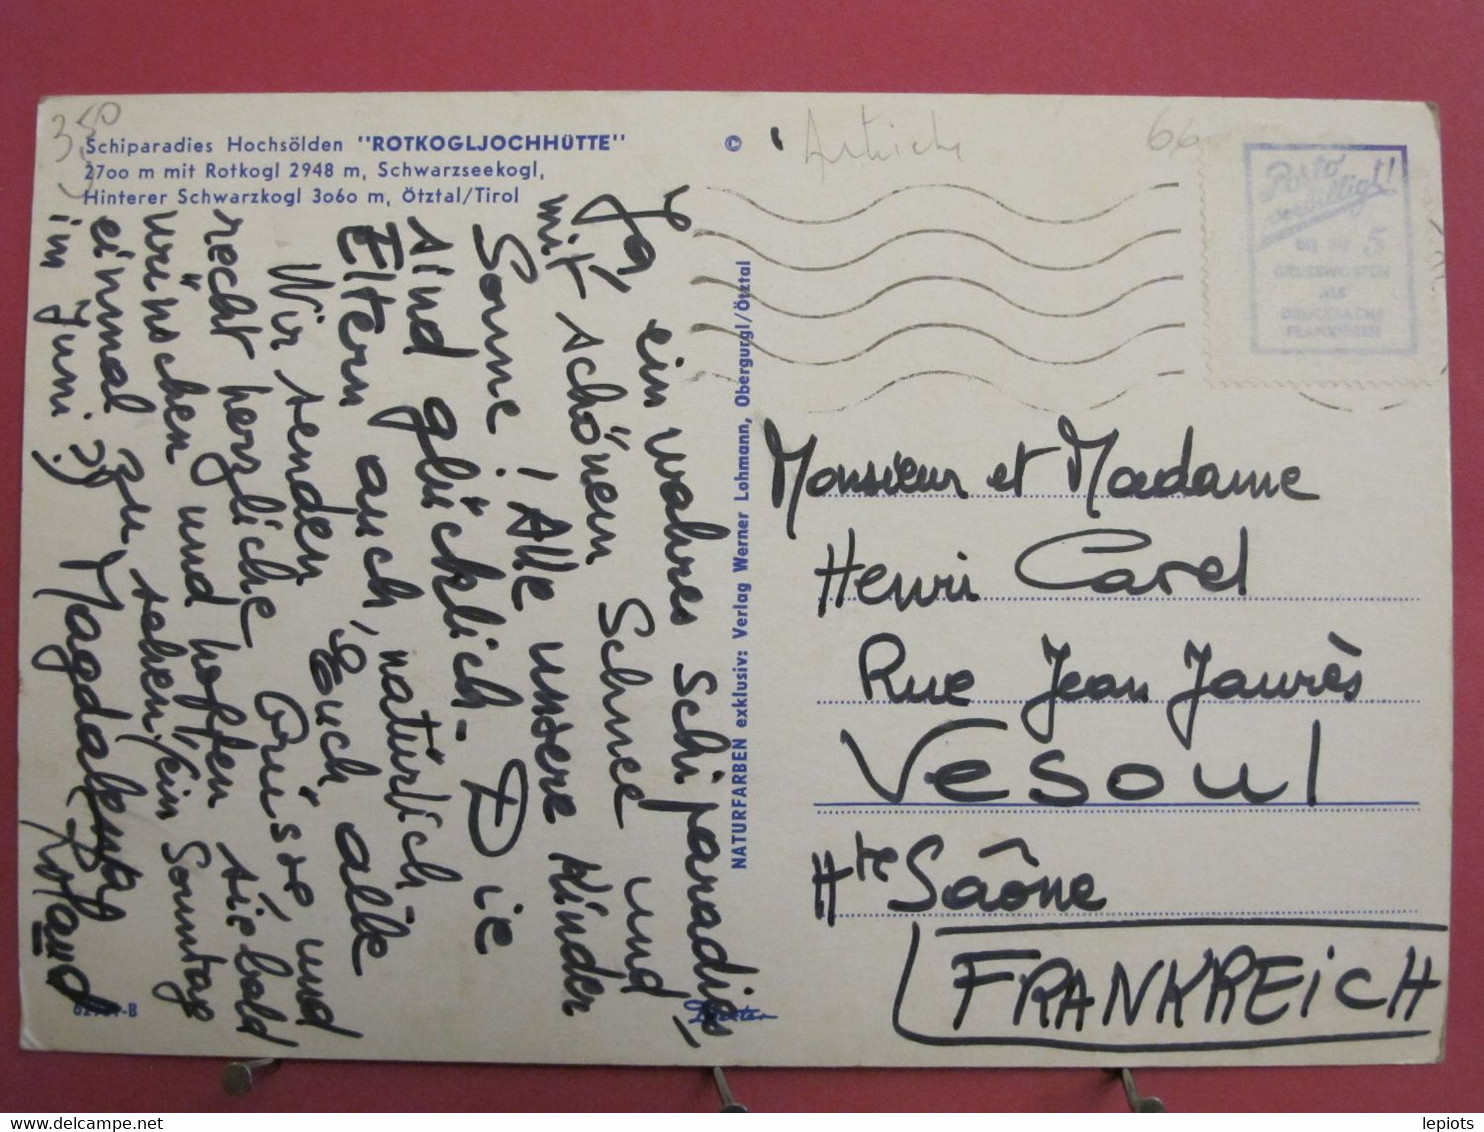 350
Schiparadies Hochsölden "ROTKOGLJOCHHÜTTE"
2700 m mit Rotkogl 2948 m, Schwarzseekogl,
Hinterer Schwarzkogl 3060 m, Ötztal/Tirol
©
66
Porto
verbilligt!
BIS ZU 5
GRUSSWORTEN
ALS
DRUCKSACHE
FRANKIEREN
Ja, ein wahres Schiparadies
mit schönem Schnee und
Sonne! Alle unsere Kinder
sind glücklich - Die
Eltern auch, natürlich
Wir senden Euch alle
recht herzliche Grüsse, und
wünschen und hoffen sie bald
einmal zu sehen! (Ein Sonntag
im Juni?) Magdalena
Roland
NATURFARBEN exklusiv: Verlag Werner Lohmann, Obergurgl/Ötztal
Monsieur et Madame
Henri Carel
Rue Jean Jaurès
Vesoul
Hte Saône
FRANKREICH
lepiots